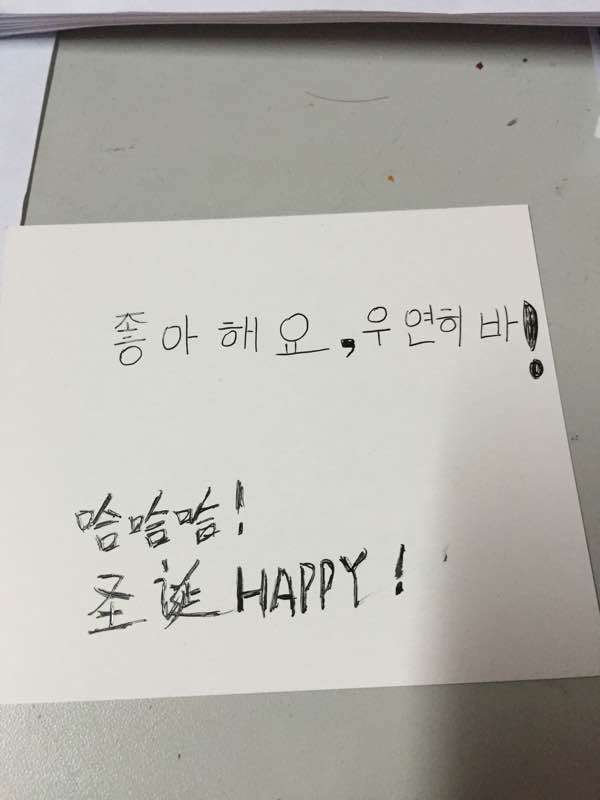 좋아해요,우연허바!
哈哈哈!
圣诞HAPPY!